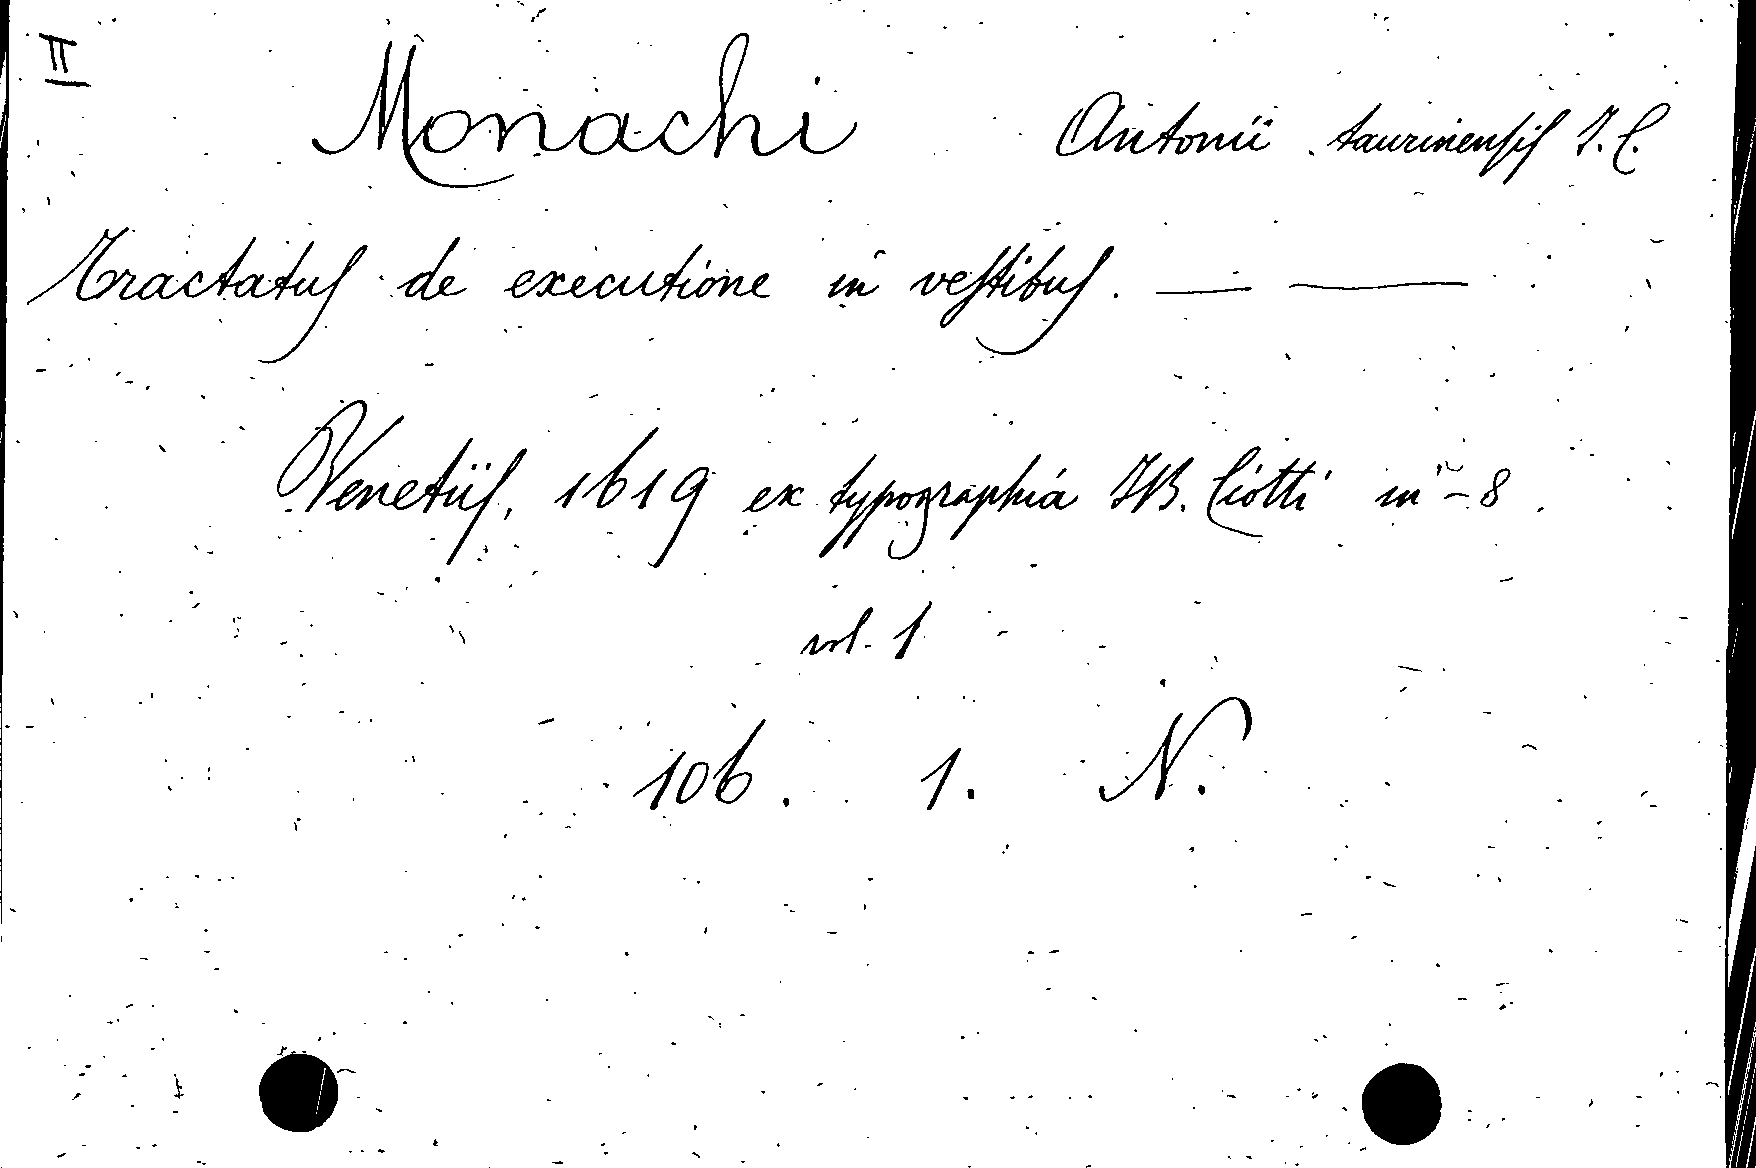 II
Monachi Antonii taurinensis J. C.
Tractatus de executione in vestibus. — —
Venetiis, 1619 ex typographia J.B. Ciotti in - 8.
vol. 1
106. 1. N.